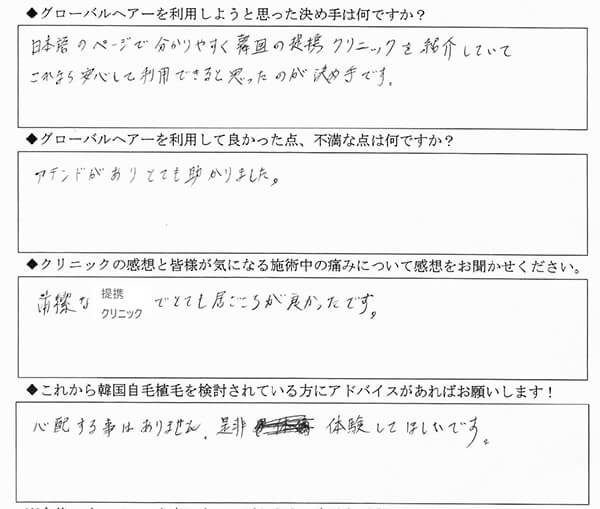 ◆グローバルヘアーを利用しようと思った決め手は何ですか？
日本語のページで分かりやすく韓国の提携クリニックを紹介していて
これなら安心して利用できると思ったのが決め手です。
◆グローバルヘアーを利用して良かった点、不満な点は何ですか？
アテンドがありとても助かりました。
◆クリニックの感想と皆様が気になる施術中の痛みについて感想をお聞かせください。
清潔な 提携クリニック でとても居ごこちが良かったです。
◆これから韓国自毛植毛を検討されている方にアドバイスがあればお願いします！
心配する事はありません。是非 体験してほしいです。